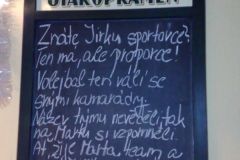 OTAKOPRAMEN
Znáte Jirku sportovce?
Ten má, ale proporce!
Volejbal teri válí se
svými kamarády.
Název týmu nevěděli, tak
na Martu si vzpomněli.
At, žije Marta team a